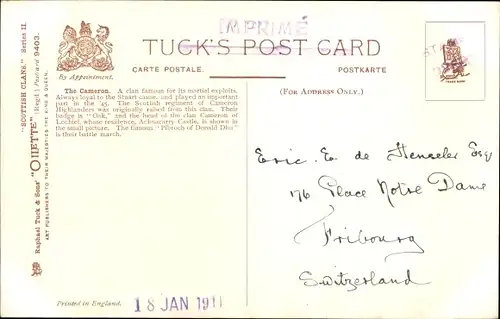 IMPRIMÉ
TUCK'S POST CARD
CARTE POSTALE. POSTKARTE
By Appointment.
(FOR ADDRESS ONLY.)
The Cameron. A clan famous for its martial exploits.
Always loyal to the Stuart cause, and played an important
part in the '45. The Scottish regiment of Cameron
Highlanders was originally raised from this clan. Their
badge is "Oak," and the head of the clan Cameron of
Lochiel, whose residence, Achnacarry Castle, is shown in
the small picture. The famous "Pibroch of Donald Dhu"
is their battle march.
"SCOTTISH CLANS." Series II.
"OILETTE" [Regd.] Postcard 9403.
Raphael Tuck & Sons'
ART PUBLISHERS TO THEIR MAJESTIES THE KING & QUEEN.
TRADE MARK
Eric. E. de Henseler Esq
176 Place Notre Dame
Fribourg
Switzerland
Printed in England.
18 JAN 1911